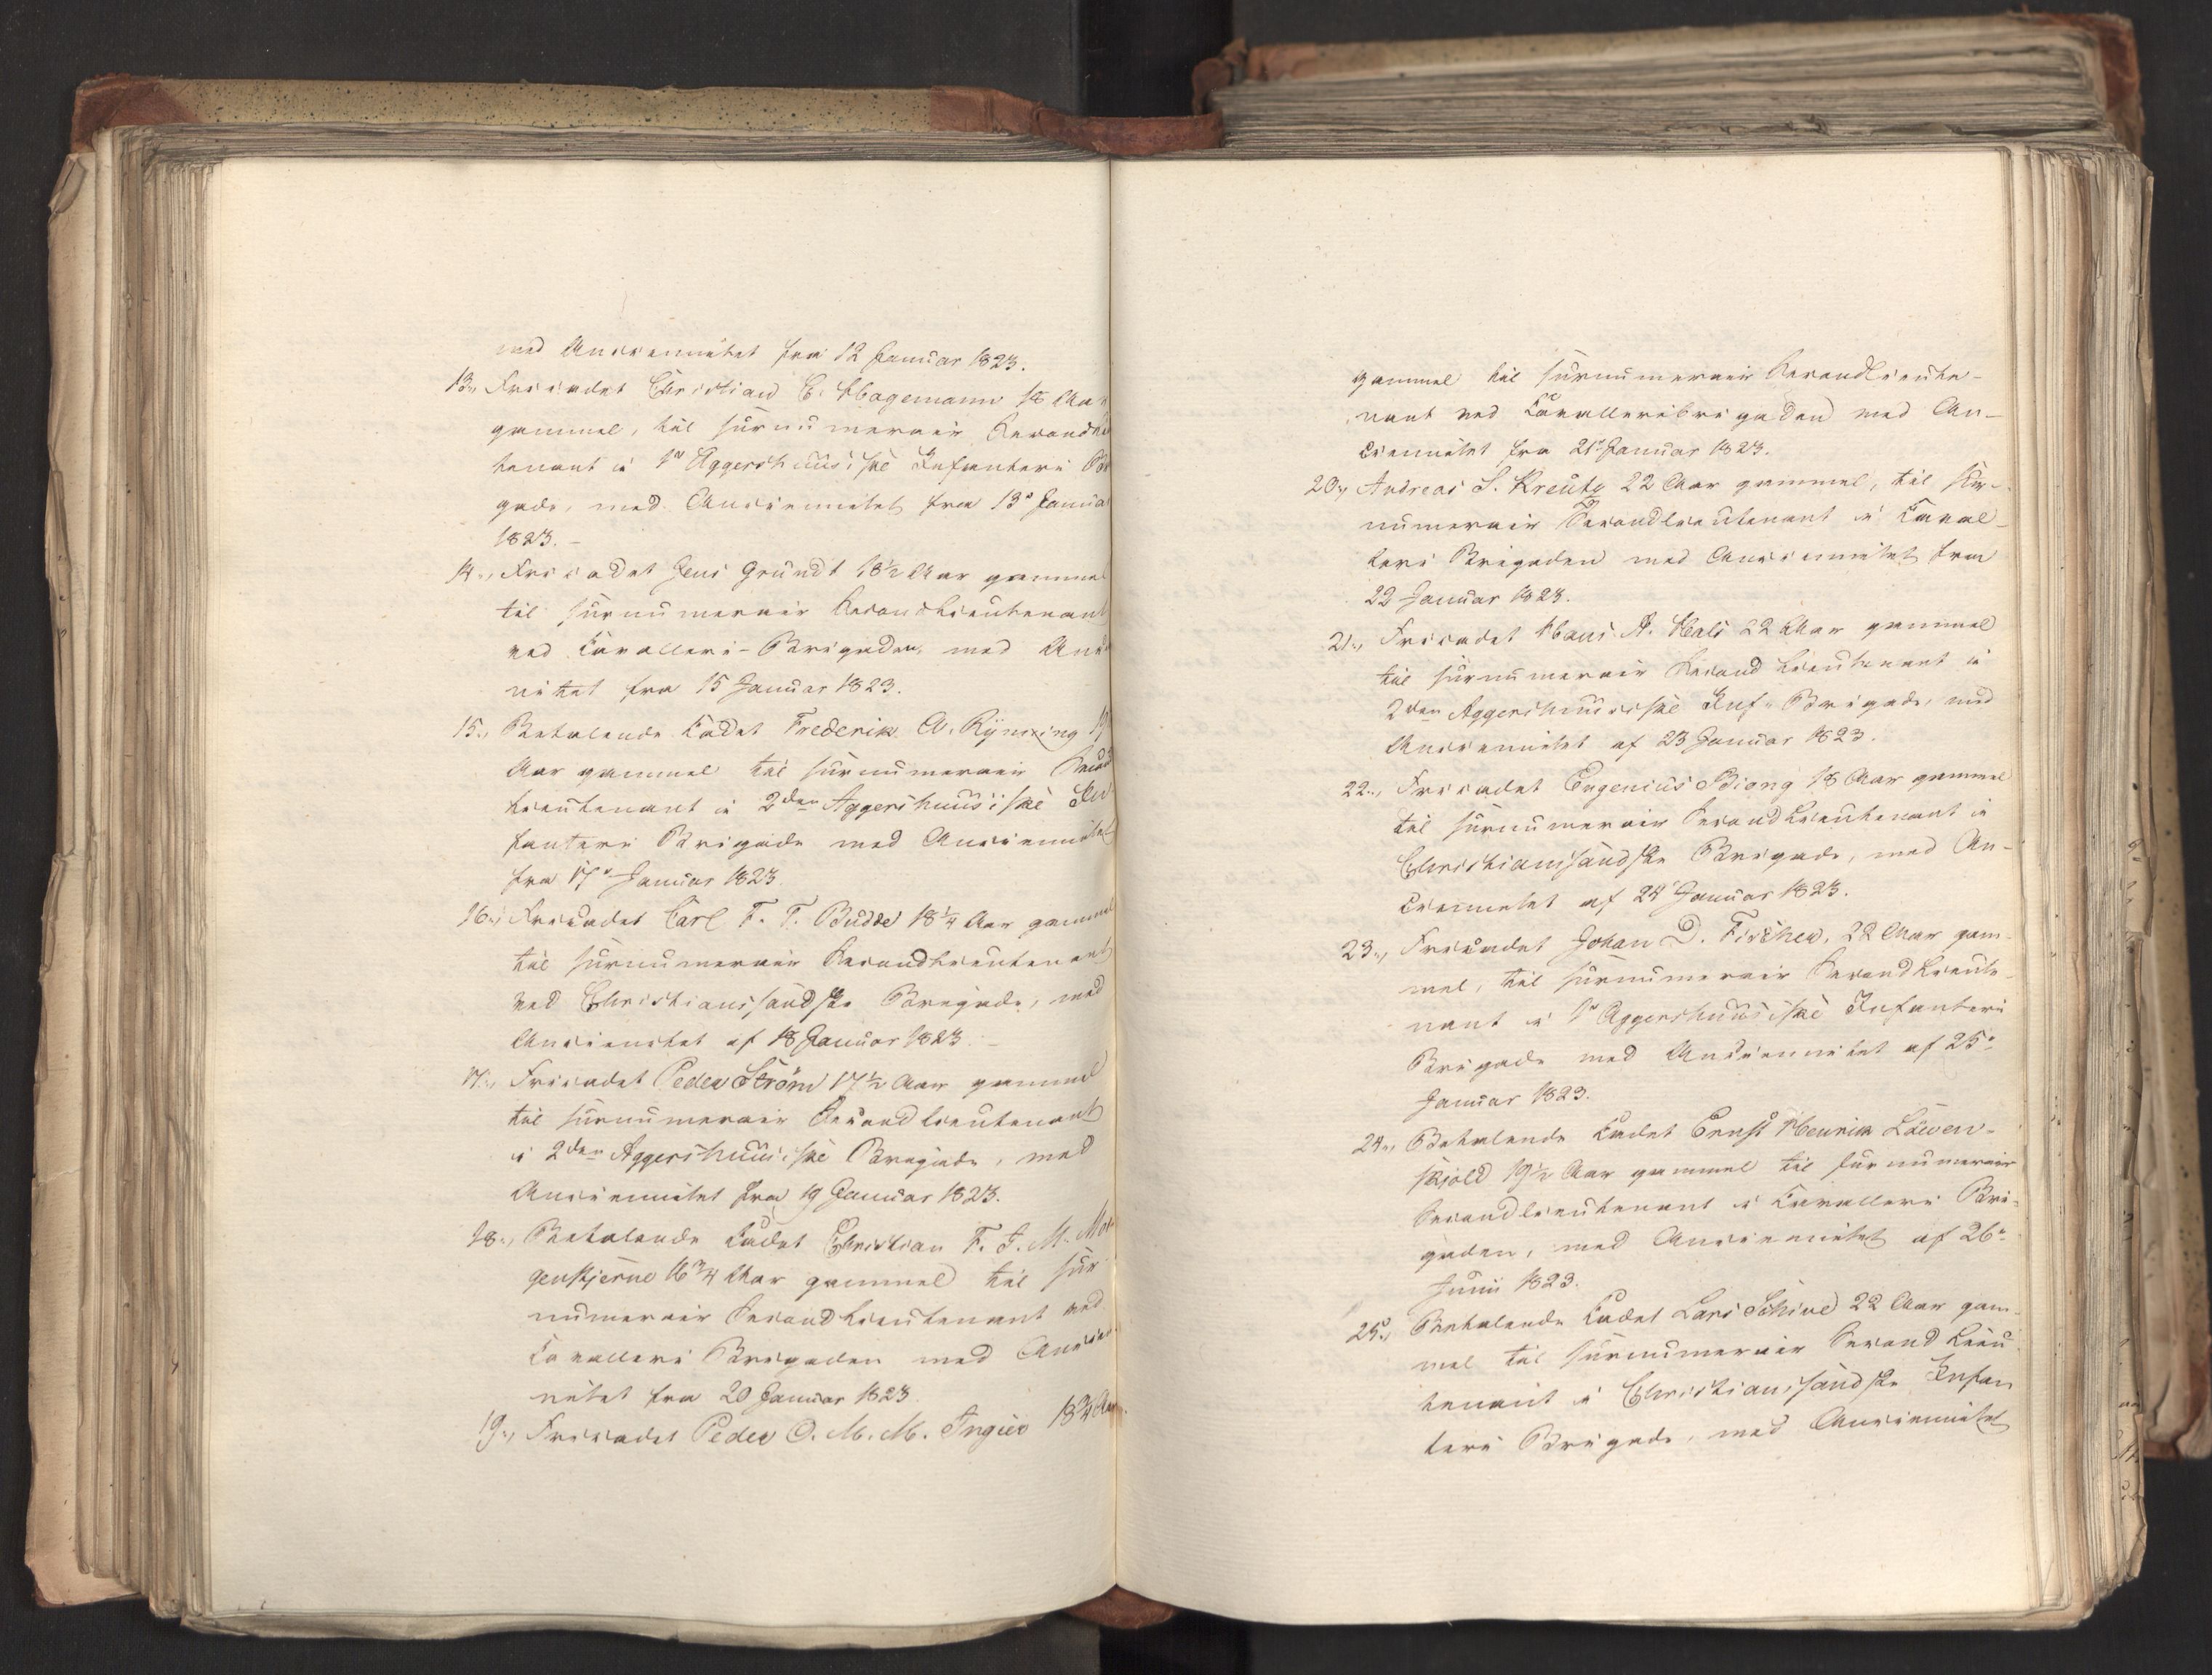 med Anciennitet fra 12 Januar 1823.
13., Fricadet Christian C. Hagemann 18 Aar
gammel, til surnumerair Secondlieu
tenant i 1ste Aggershuusiske Infanteri Bri
gade, med Anciennitet fra 13de Januar
1823. –
14., Fricadet Jens Grundt 18½ Aar gammel
til surnumerair Secondlieutenant
ved Cavalleri-Brigaden, med Ancien
nitet fra 15 Januar 1823.
15., Betalende Cadet Frederik A. Rynning 19
Aar gammel til surnumerair Second
lieutenant i 2den Aggershuusiske In
fanteri Brigade med Anciennitet
fra 17de Januar 1823
16., Fricadet Carl F. F. Budde 18¼ Aar gammel
til surnumerair Secondlieutenant
ved Christianssandske Brigade, med
Ancienitet af 18 Januar 1823. –
17., Fricadet Peder Strøm 17½ Aar gammel
til surnumerair Secondlieutenant
i 2den Aggershuusiske Brigade, med
Anciennitet fra 19 Januar 1823.
18., Betalende Cadet Christian F. J. M. Mor
genstjerne 16¾ Aar gammel til sur
numerair Secondlieutenant ved
Cavalleri Brigaden med Ancien
nitet fra 20 Januar 1823.
19., Fricadet Peder O. M. M. Ingier 18¾ Aar
gammel til surnumerair Secondlieute-
nant ved Cavalleribrigaden med An-
ciennitet fra 21de Januar 1823.
20., Andreas S. Kreutz 22 Aar gammel, til Sur-
numerair Secondlieutenant i Caval-
leri Brigaden med Anciennitet fra
22 Januar 1823.
21., Fricadet Hans A. Hals 22 Aar gammel
til surnumerair Second Lieutenant i
2den Aggershuusiske Inf. Brigade, med
Anciennitet af 23 Januar 1823.
22., Fricadet Eugenius Biong 18 Aar gammel
til surnumerair Secondlieutenant i
Christianssandske Brigade, med An-
ciennitet af 24 Januar 1823.
23., Fricadet Johan D. Fischer, 22 Aar gam-
mel, til surnumerair Secondlieute-
nant i 1ste Aggershuusiske Infanteri
Brigade med Anciennitet af 25de
Januar 1823.
24., Betalende Cadet Ernst Henrik Löwen-
skjold 19½ Aar gammel til surnumerair
Secondlieutenant i Cavalleri Bri-
gaden, med Anciennitet af 26de
Junii 1823.
25., Betalende Cadet Lars Schive 22 Aar gam-
mel til surnumerair Second Lieu
tenant i Christianssandske Infan
teri Brigade, med Anciennitet